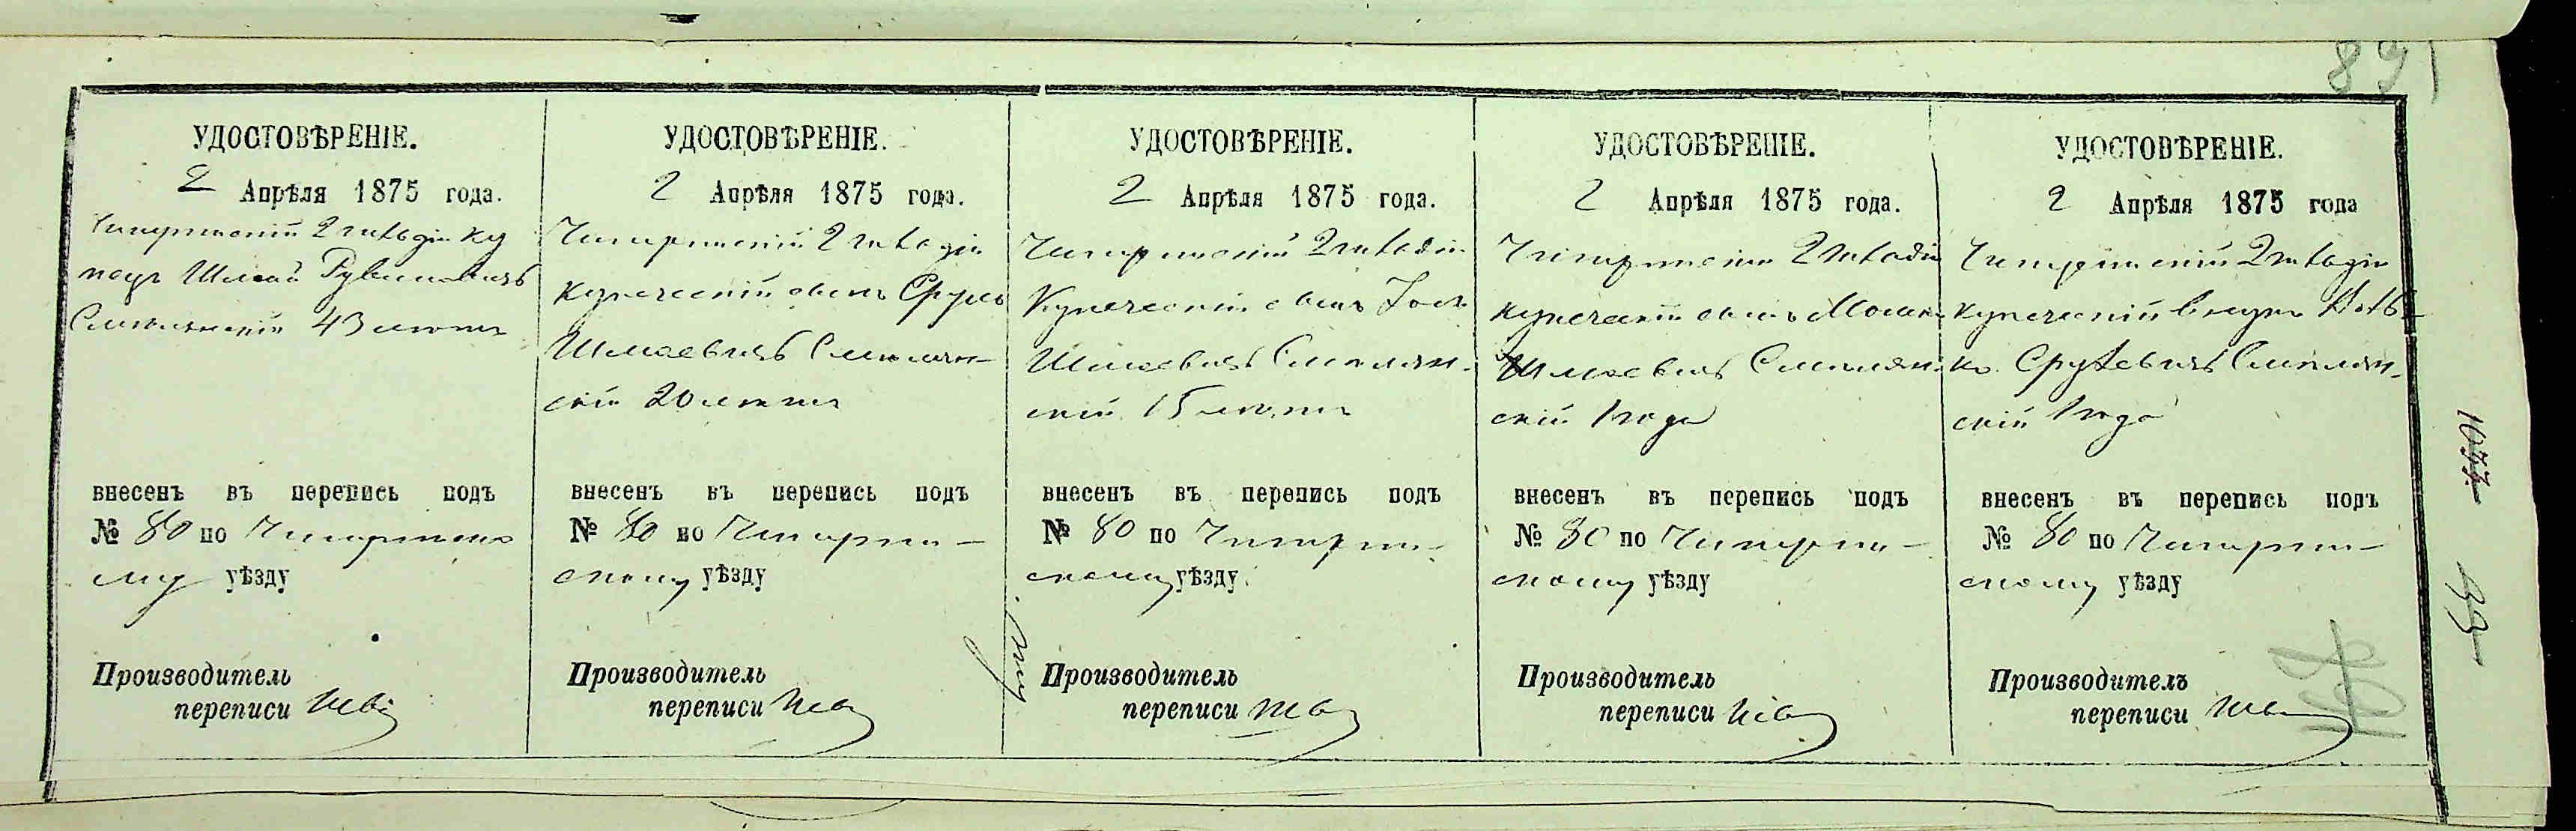 891
УДОСТОВѢРЕНІЕ.
2 Апрѣля 1875 года.
Чигиринскій 2 гильдіи ку
пецъ Шмая Рувиновичъ
Смолянскій 43 лѣтъ
внесенъ въ перепись подъ
№ 80 по Чигиринско
му уѣзду
Производитель
переписи
УДОСТОВѢРЕНІЕ.
2 Апрѣля 1875 года.
Чигиринскій 2 гильдіи
купеческій сынъ Сруль
Шмаевичъ Смолян-
скій 20 лѣтъ
внесенъ въ перепись подъ
№ 80 по Чигирин-
скому уѣзду
Производитель
переписи
УДОСТОВѢРЕНІЕ.
2 Апрѣля 1875 года.
Чигиринскій 2 гильдіи
Купеческій сынъ
Шмаевичъ Смолян-
скій 15 лѣтъ
внесенъ въ перепись подъ
№ 80 по Чигирин-
скому уѣзду
Производитель
переписи
УДОСТОВѢРЕНІЕ.
2 Апрѣля 1875 года.
Чигиринскій 2 гильдіи
купеческій сынъ
Шмаевичъ Смолян-
скій 1 года
внесенъ въ перепись подъ
№ 80 по Чигирин-
скому уѣзду
Производитель
переписи
УДОСТОВѢРЕНІЕ.
2 Апрѣля 1875 года
Чигиринскій 2 гильдіи
купеческій внукъ
Срулевичъ Смолян-
скій 1 года
внесенъ въ перепись подъ
№ 80 по Чигирин-
скому уѣзду
Производитель
переписи